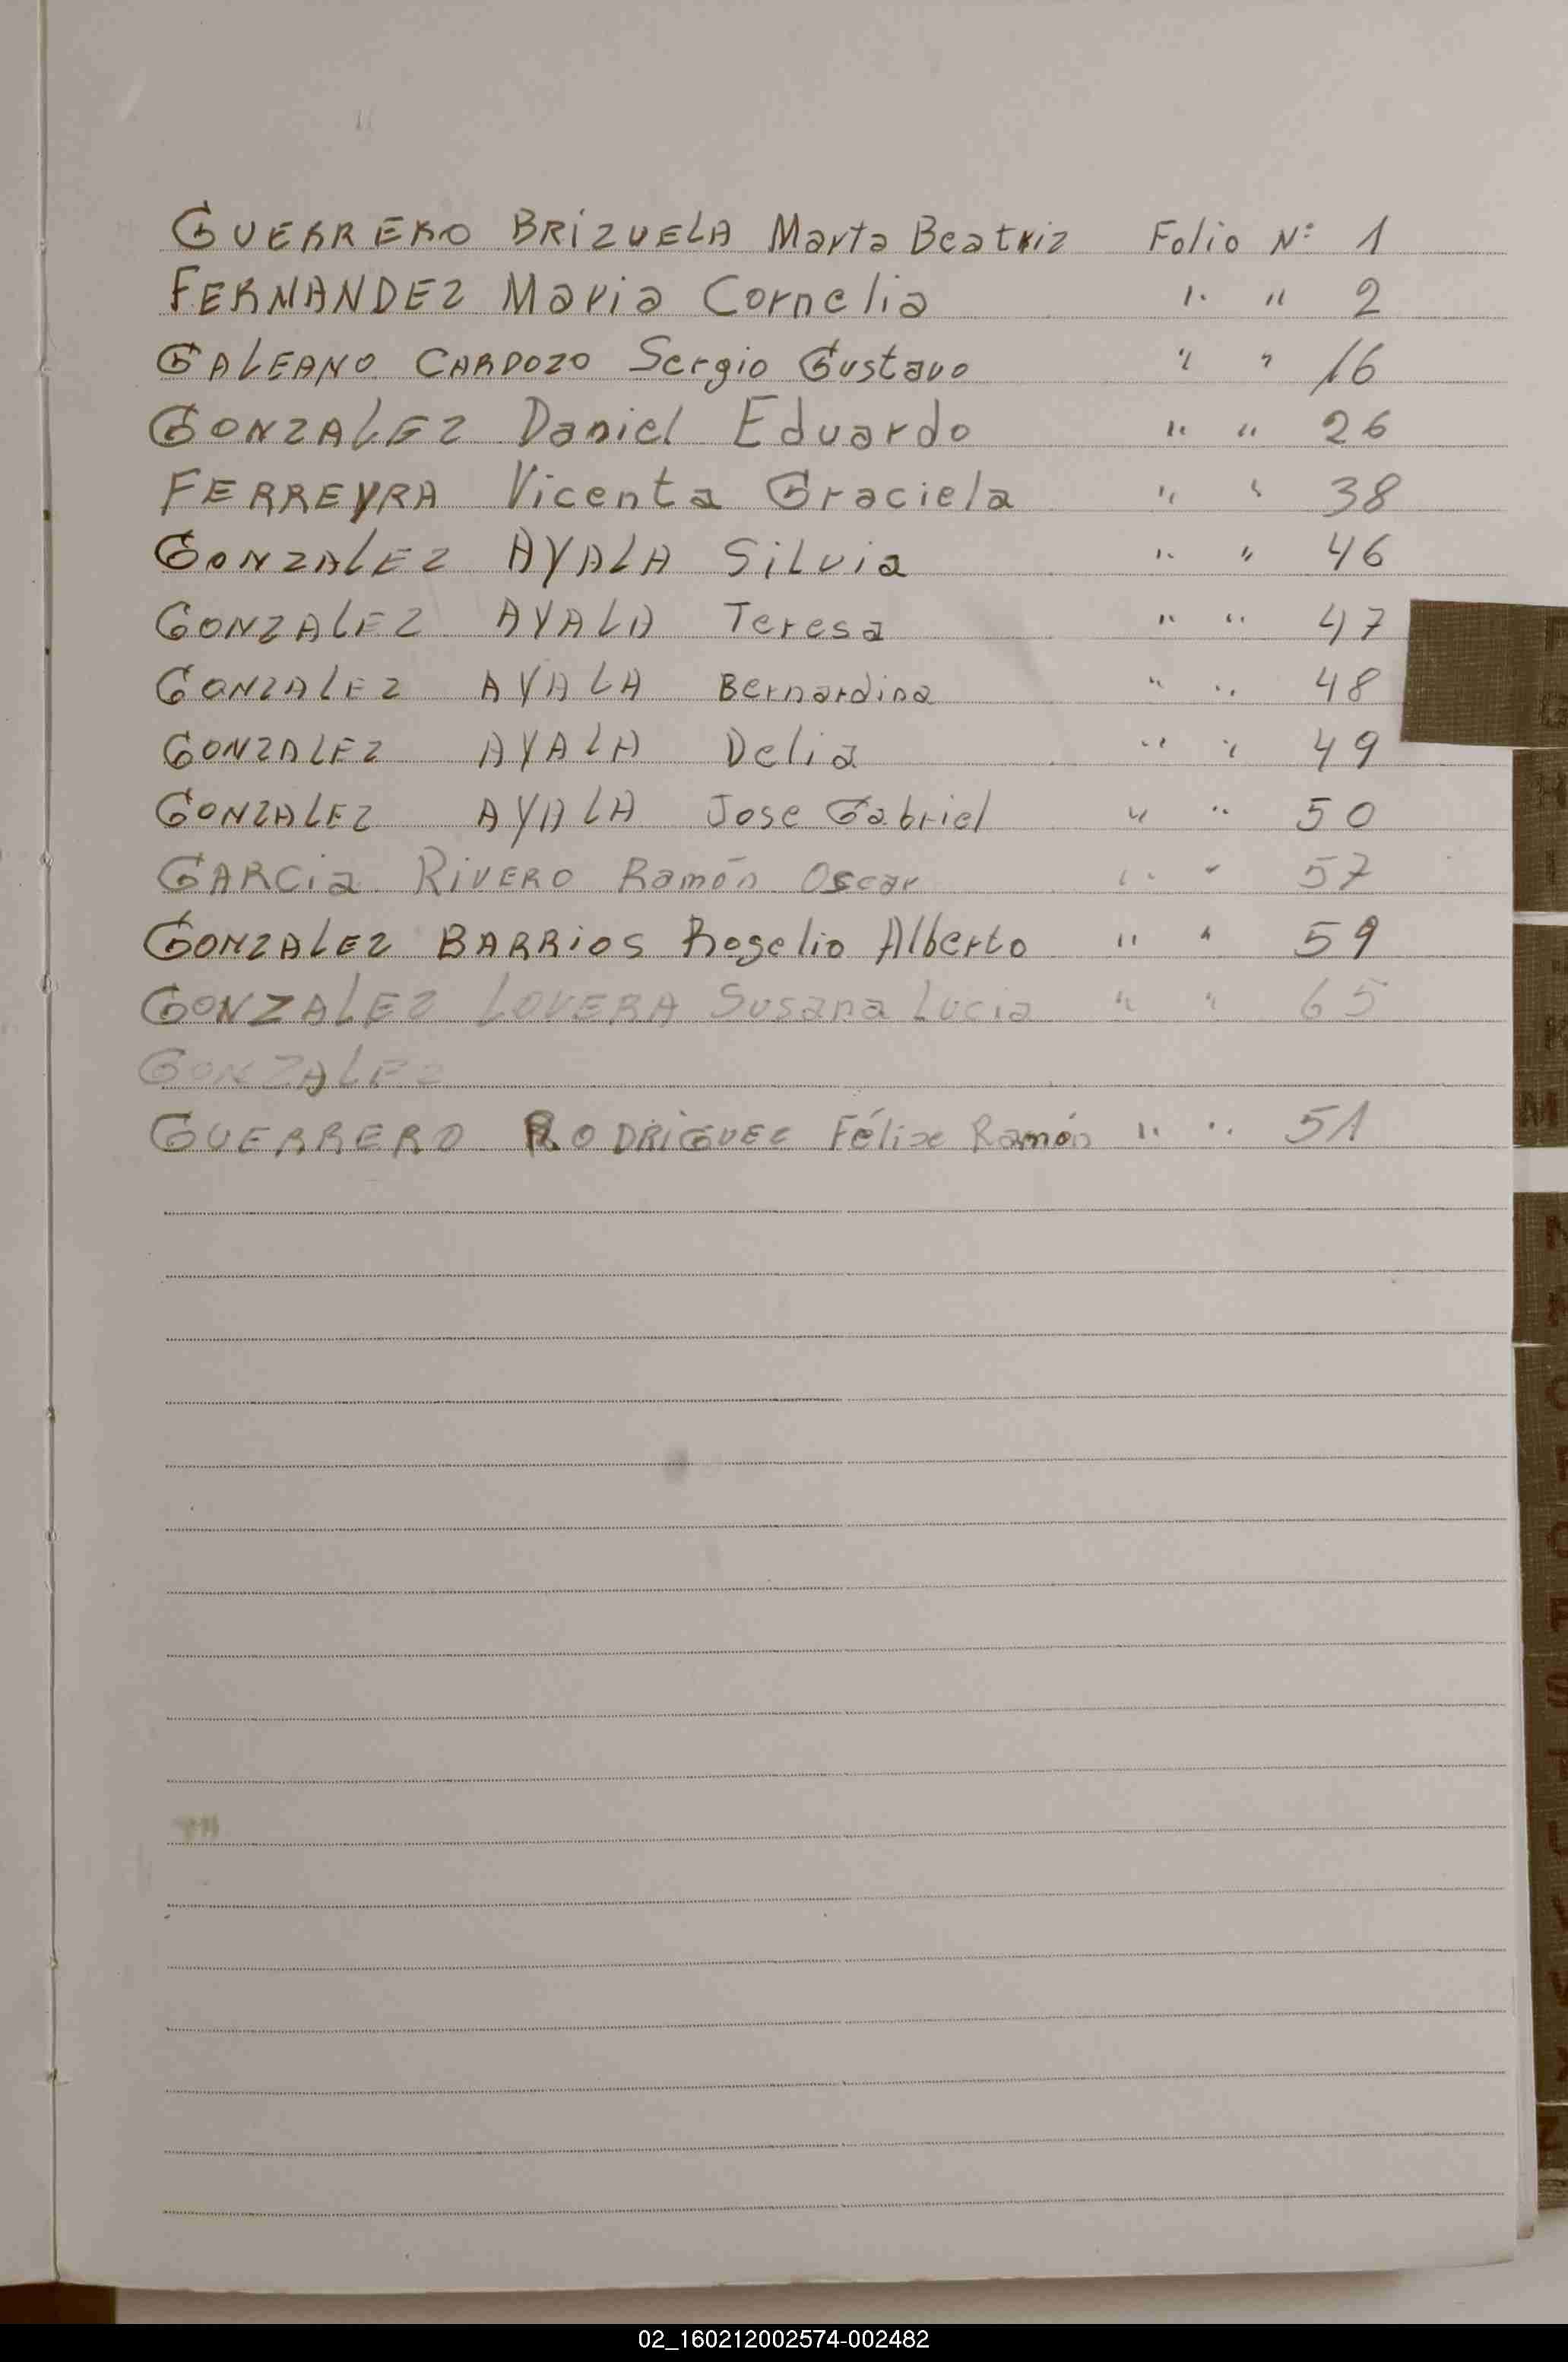 GUERRERO BRIZUELA Marta Beatriz Folio Nº 1
FERNANDEZ Maria Cornelia " " 2
GALEANO CARDOZO Sergio Gustavo " " 16
GONZALEZ Daniel Eduardo " " 26
FERREYRA Vicenta Graciela " " 38
GONZALEZ AYALA Silvia " " 46
GONZALEZ AYALA Teresa " " 47
GONZALEZ AYALA Bernardina " " 48
GONZALEZ AYALA Delia " " 49
GONZALEZ AYALA Jose Gabriel " " 50
GARCia RIVERO Ramón Oscar " " 57
GONZALEZ BARRIOS Rogelio Alberto " " 59
GONZALEZ LOVERA Susana Lucia " " 65
GONZALEZ
GUERRERO RODRIGUEZ Félix Ramón " " 51
02_160212002574-002482